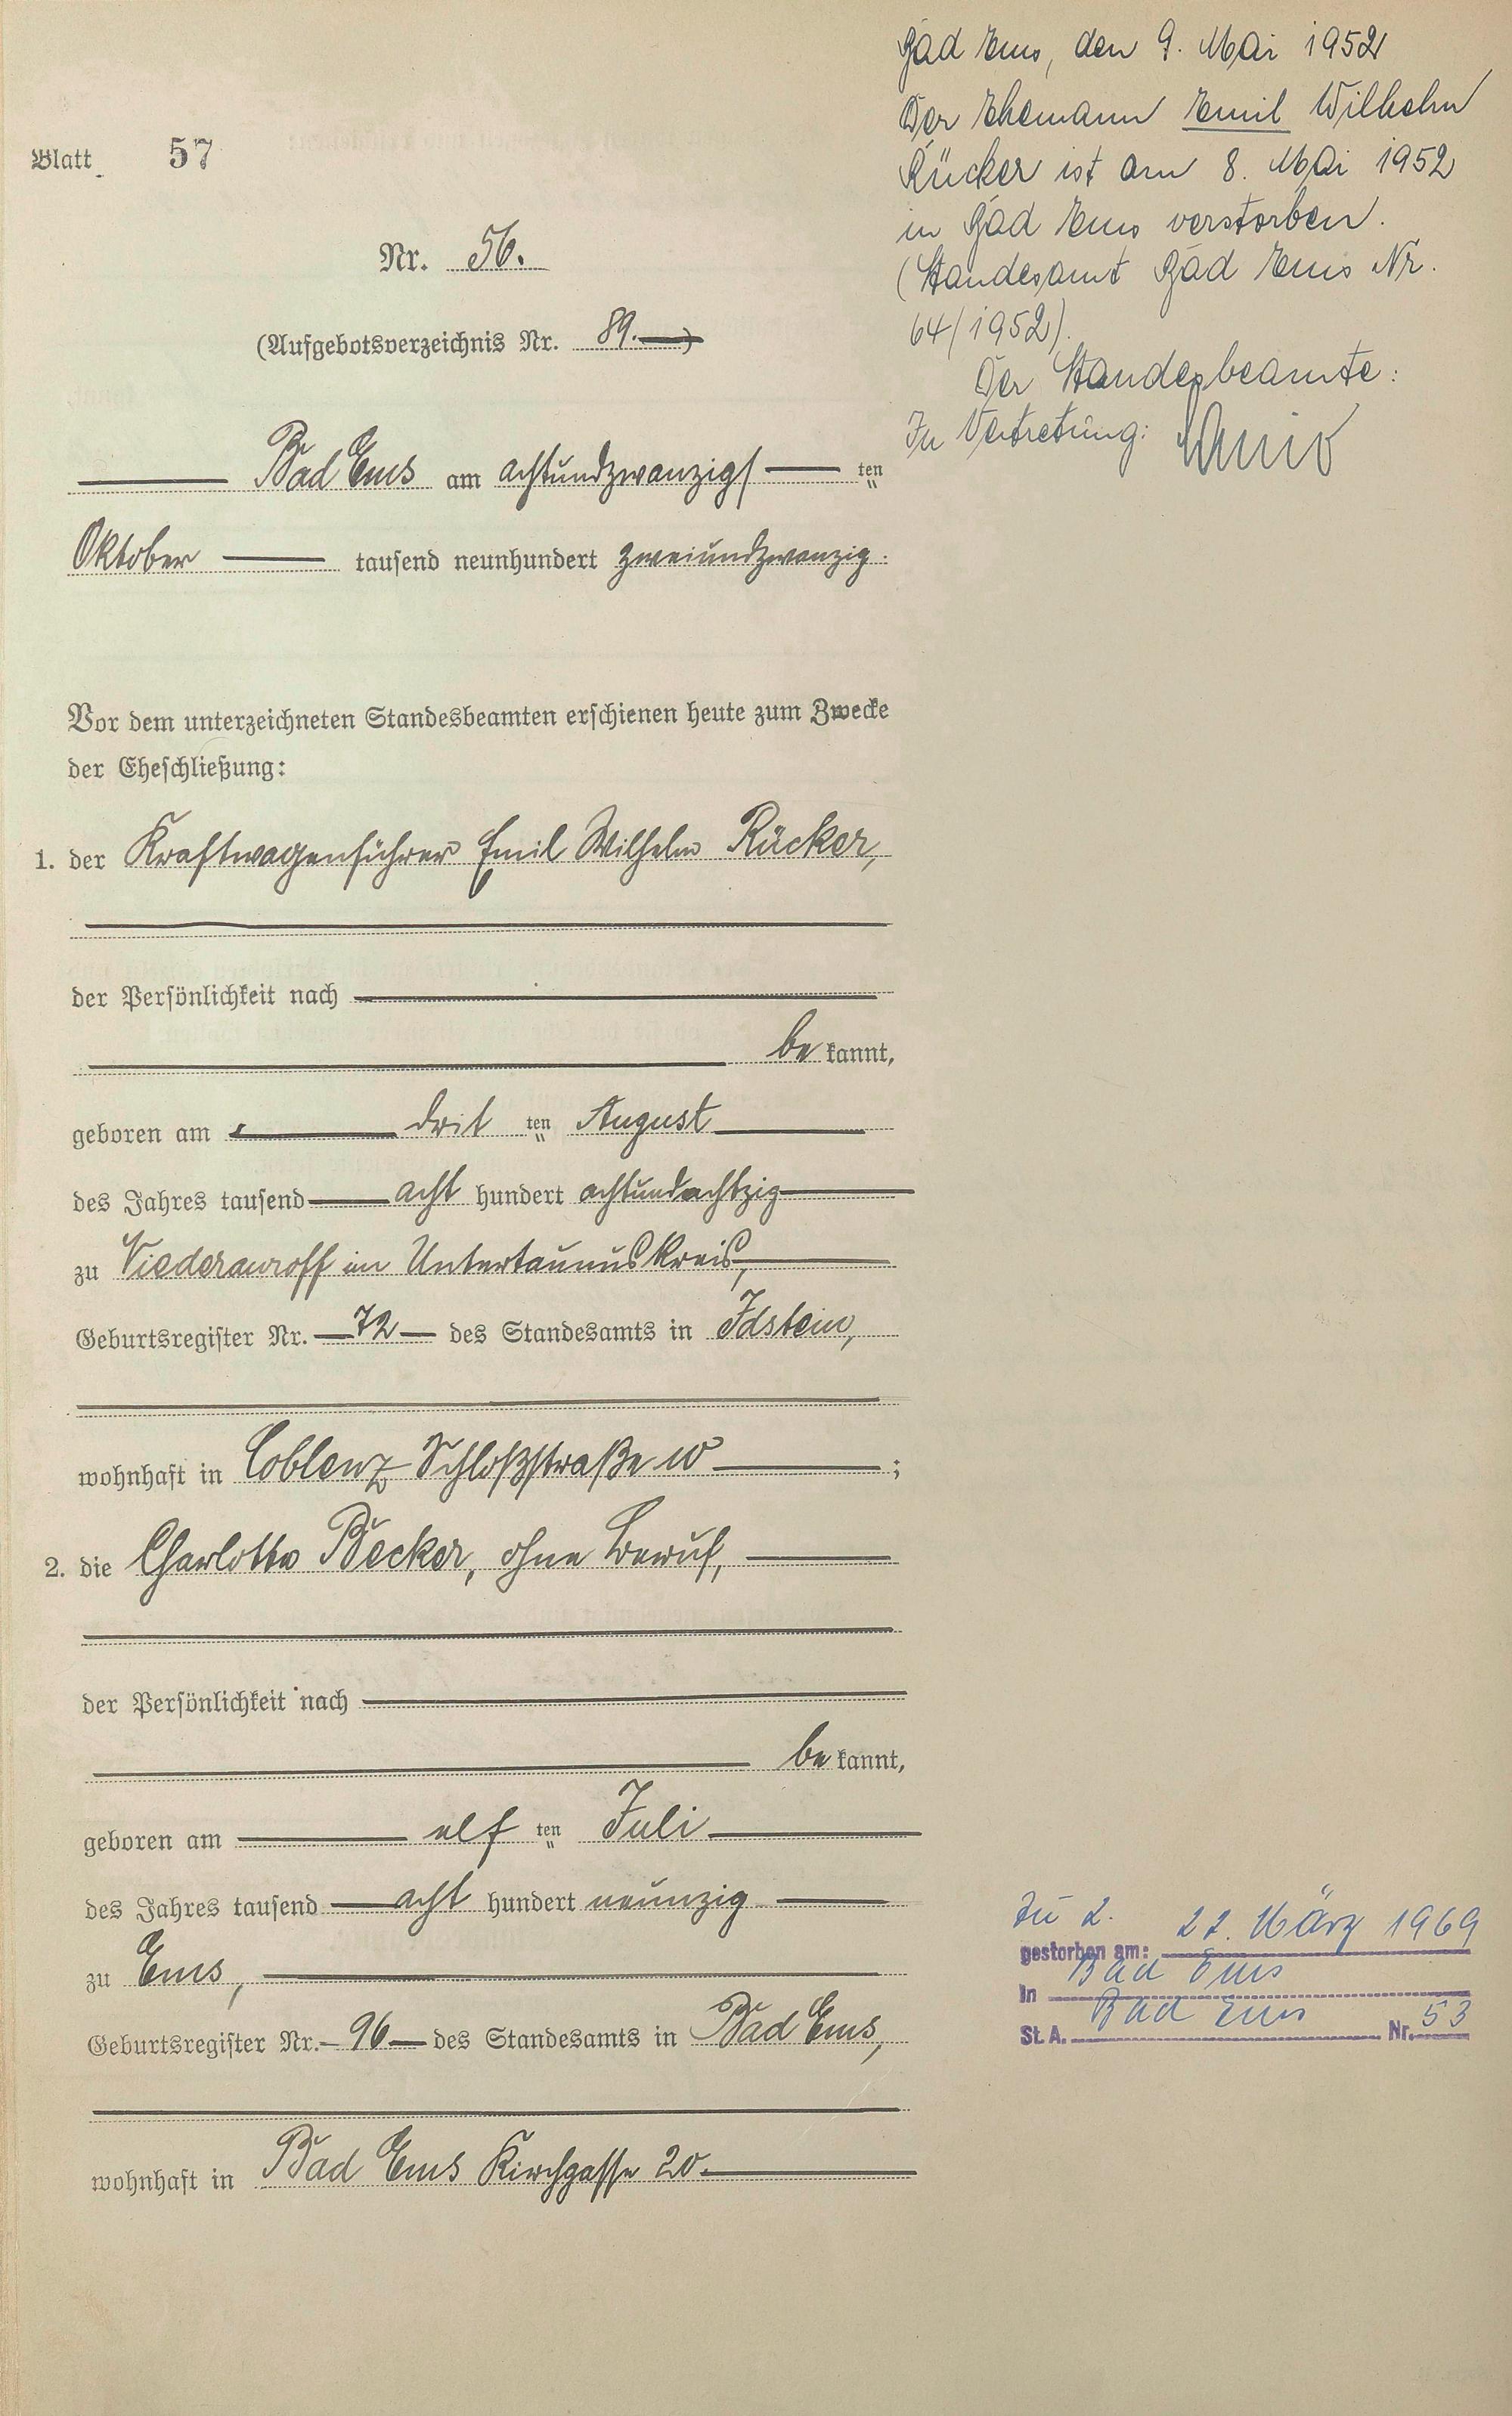 Blatt 57
Nr. 56.
(Aufgebotsverzeichnis Nr. 89.)
Bad Ems am achtundzwanzigs ten
Oktober tausend neunhundert zweiundzwanzig.
Vor dem unterzeichneten Standesbeamten erschienen heute zum Zwecke
der Eheschließung:
1. der Kraftwagenführer Emil Wilhelm Rücker,
der Persönlichkeit nach
be kannt,
geboren am drit ten August
des Jahres tausend acht hundert achtundachtzig
zu Niederauroff im Untertaunuskreis,
Geburtsregister Nr. 72 des Standesamts in Idstein,
wohnhaft in Coblenz Schloßstraße 10 ;
2. die Charlotte Becker, ohne Beruf,
der Persönlichkeit nach
be kannt,
geboren am elf ten Juli
des Jahres tausend acht hundert neunzig
zu Ems,
Geburtsregister Nr. 96 des Standesamts in Bad Ems,
wohnhaft in Bad Ems Kirchgasse 20.
Bad Ems, den 9. Mai 1952
Der Ehemann Emil Wilhelm
Rücker ist am 8. Mai 1952
in Bad Ems verstorben.
(Standesamt Bad Ems Nr.
64/1952).
Der Standesbeamte:
In Vertretung:
Zu 2.
gestorben am: 22. März 1969
in Bad Ems
St. A. Bad Ems Nr. 53